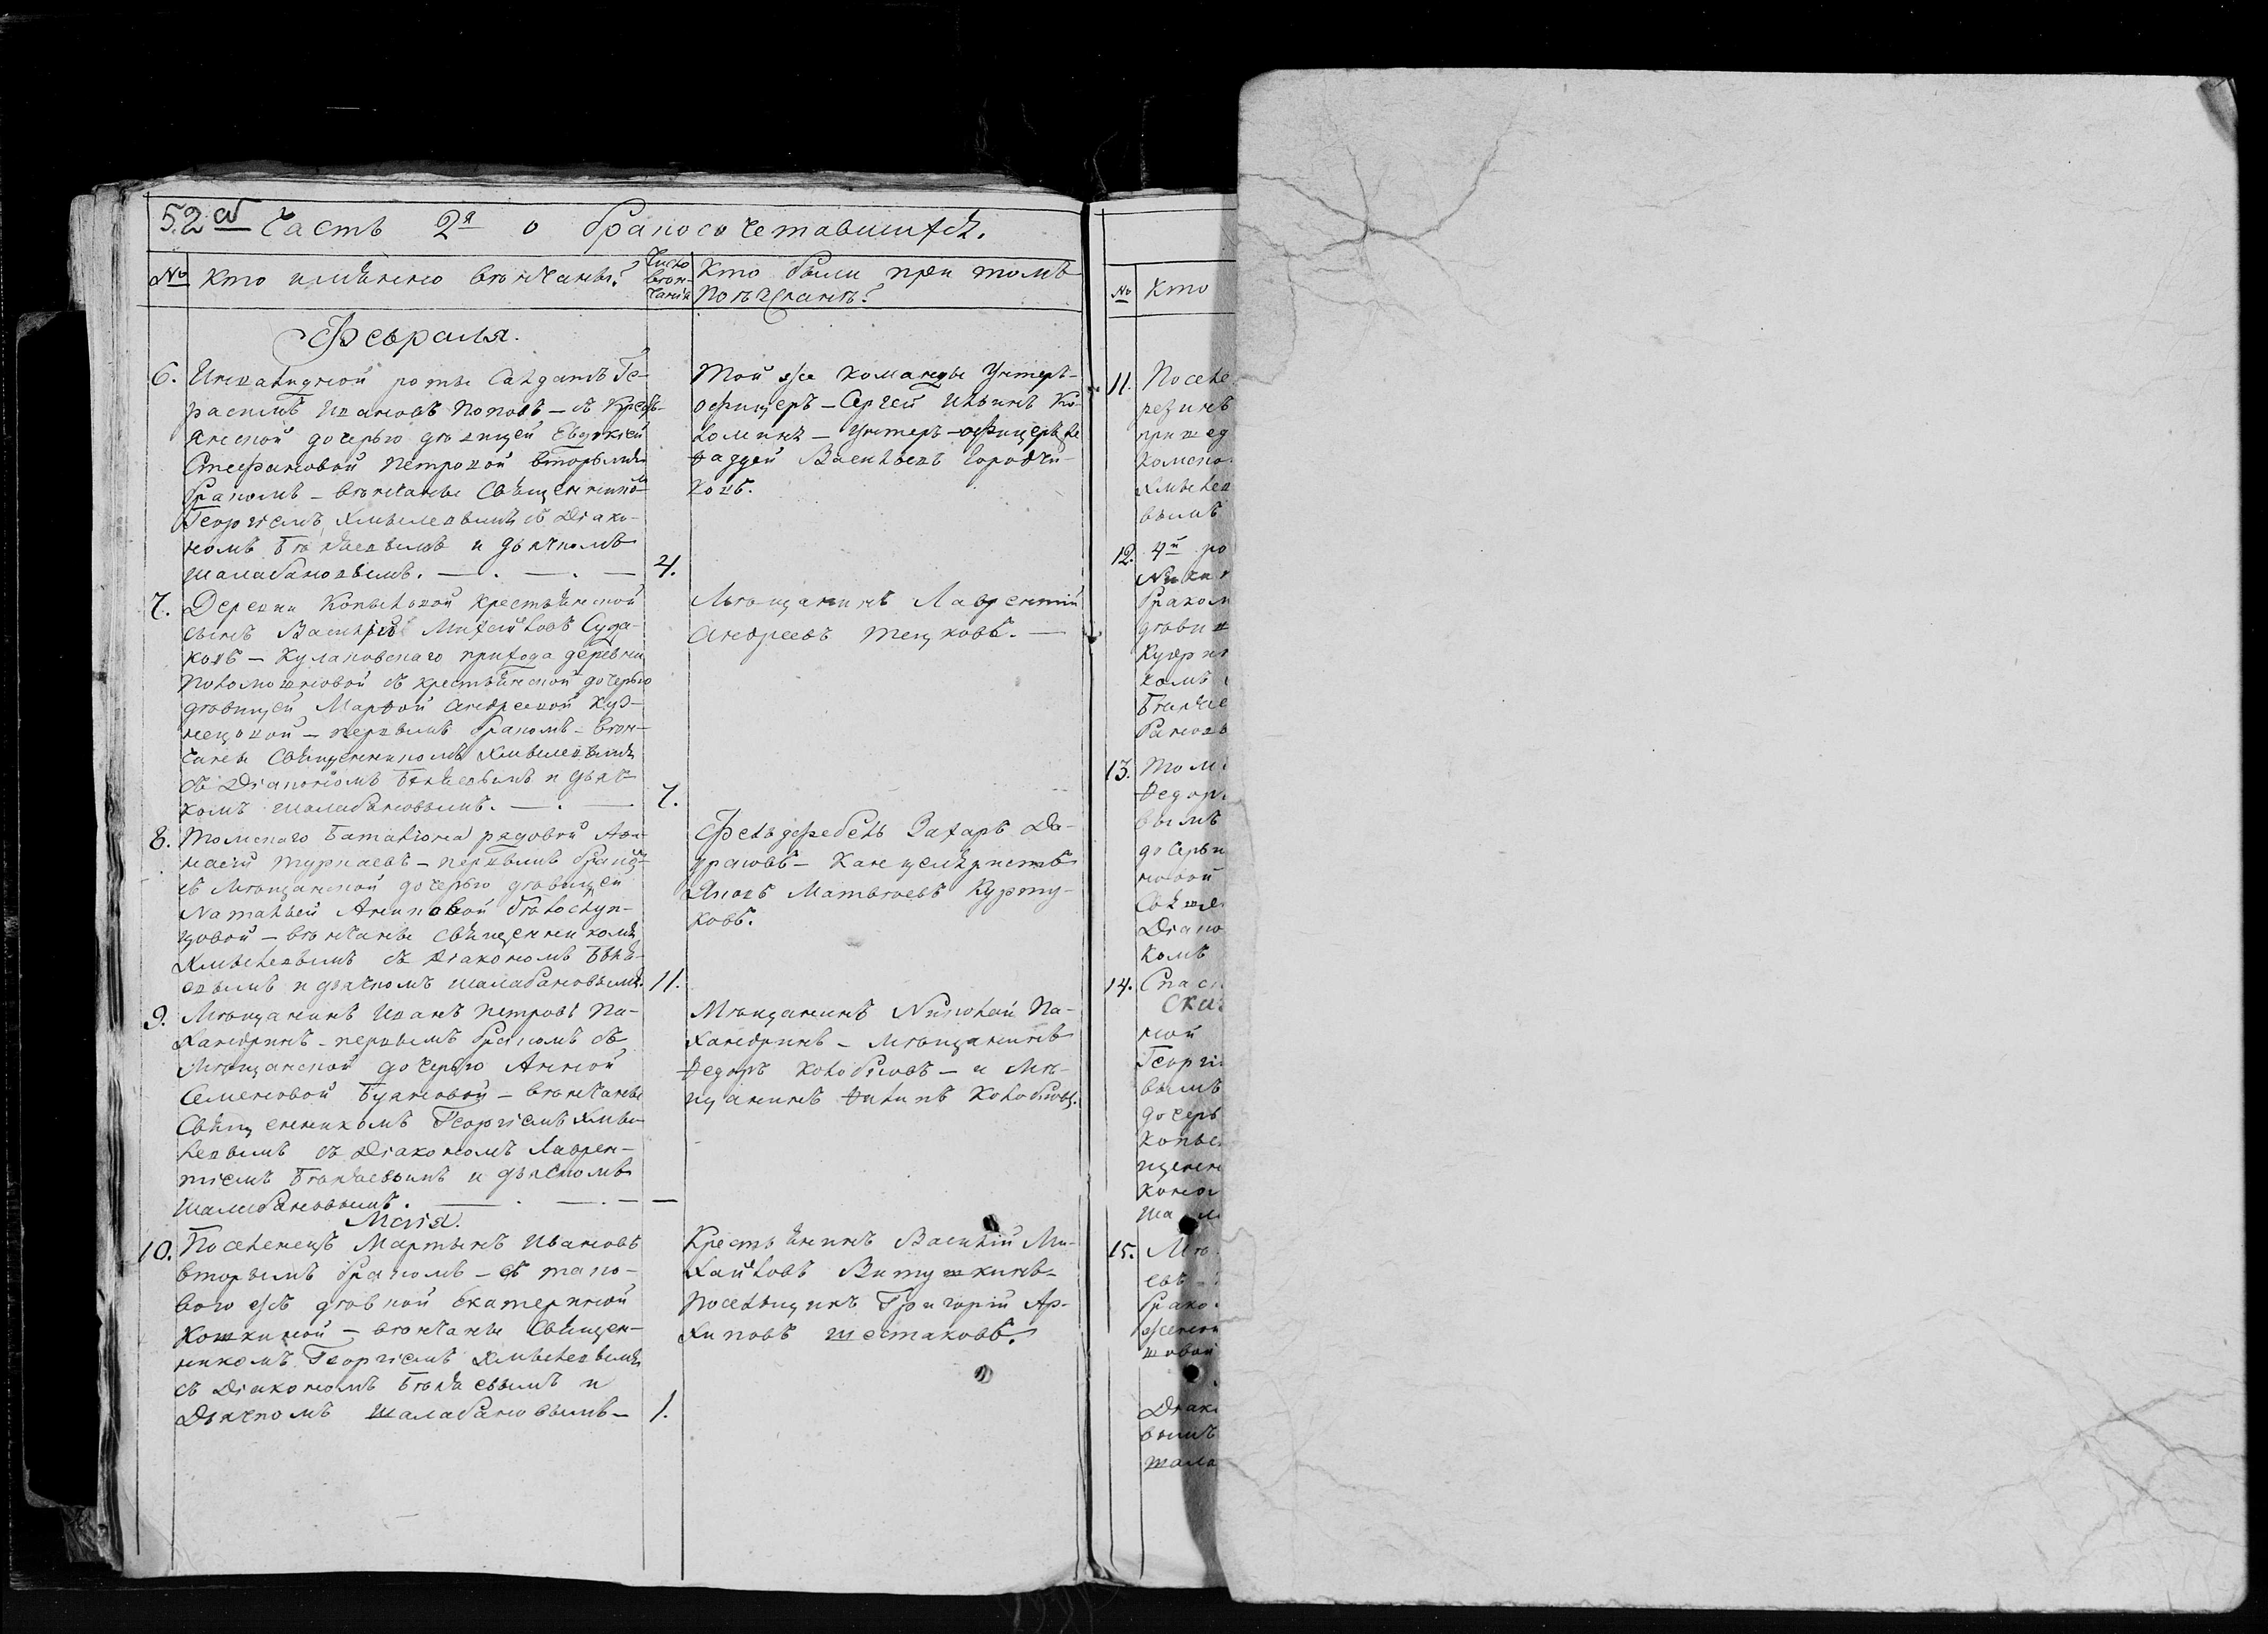 52 Часть 2я о бракосочетавшихся.
№ Кто имянно венчаны? Число венчанія Кто были при томъ поезжанѣ?
Февраля.
6. Инвалидной роты Салдатъ Ге-
расимъ Ивановъ Поповъ – съ Кресть-
янской дочерью дѣвицей Евдокіей
Стефановой Петровой вторымъ
бракомъ – вѣнчаны Священнико
Георгіемъ Хмылевымъ съ Діако-
номъ Бѣляевымъ и дьячкомъ
Шалабановымъ. — . — . — 4.
Той же команды Унтеръ-
офицеръ – Сергей Ильинъ Ко-
ломинъ – Унтеръ-офицеръ же
Фаддей Васильевъ Городчи-
ковъ.
7. Деревни Копыловой крестьянской
сынъ Василій Михайловъ Суда-
ковъ – Кулаковскаго прихода деревни
Поломошновой съ крестьянской дочерью
дѣвицей Марфой Андреевой Куз-
нецовой – первымъ бракомъ – вѣн-
чаны Священникомъ Хмылевымъ
съ Діакономъ Бѣляевымъ и дьяч-
комъ Шалабановымъ. — . — 7.
Мѣщанинъ Лаврентій
Андреевъ Тецковъ. —
8. Томскаго Баталіона рядовой Афа-
насій Турнаевъ – первымъ брако
съ Мѣщанской дочерью дѣвицей
Натальей Антиповой Бѣлослуд-
цовой – вѣнчаны Священникомъ
Хмылевымъ съ Діакономъ Бѣля-
евымъ и дьячкомъ Шалабановымъ. 11.
Фельдфебель Захаръ
– Канцеляристъ
Яковъ Матвѣевъ Курту-
ковъ.
9. Мѣщанинъ Иванъ Петровъ Па-
хандринъ – первымъ бракомъ съ
Мѣщанской дочерью Анной
Семеновой Буяновой – вѣнчаны
Священникомъ Георгіемъ Хмы-
левымъ съ Діакономъ Лаврен-
тіемъ Бѣляевымъ и дьячкомъ
Шалабановымъ. — . — . — —
Мѣщанинъ Николай Па-
хандринъ – Мѣщанинъ
Федоръ Колобовъ – и Мѣ-
щанинъ Филипъ Колобовъ.
Маія.
10. Поселенецъ Мартынъ Ивановъ
вторымъ бракомъ – съ тако-
вою жъ дѣвкой Екатериной
Кошкиной – вѣнчаны Священ-
никомъ Георгіемъ Хмылевымъ
съ Діакономъ Бѣляевымъ и
Дьячкомъ Шалабановымъ – 1.
Крестьянинъ Василій Ми-
хайловъ Витушкинъ –
Посельщикъ Григорій Ар-
хиповъ Шестаковъ.
№ Кто
11. Поселе
12. 4й ро
Ники
браком
дѣвиц
комъ
Бѣляе
13. Томс
Федор
вымъ
дочерь
новой
Діако
комъ
14. Спас
ской
Георгі
вымъ
дочерь
Копы
щенн
15. Мѣ
брако
Діак
вымъ
Шала